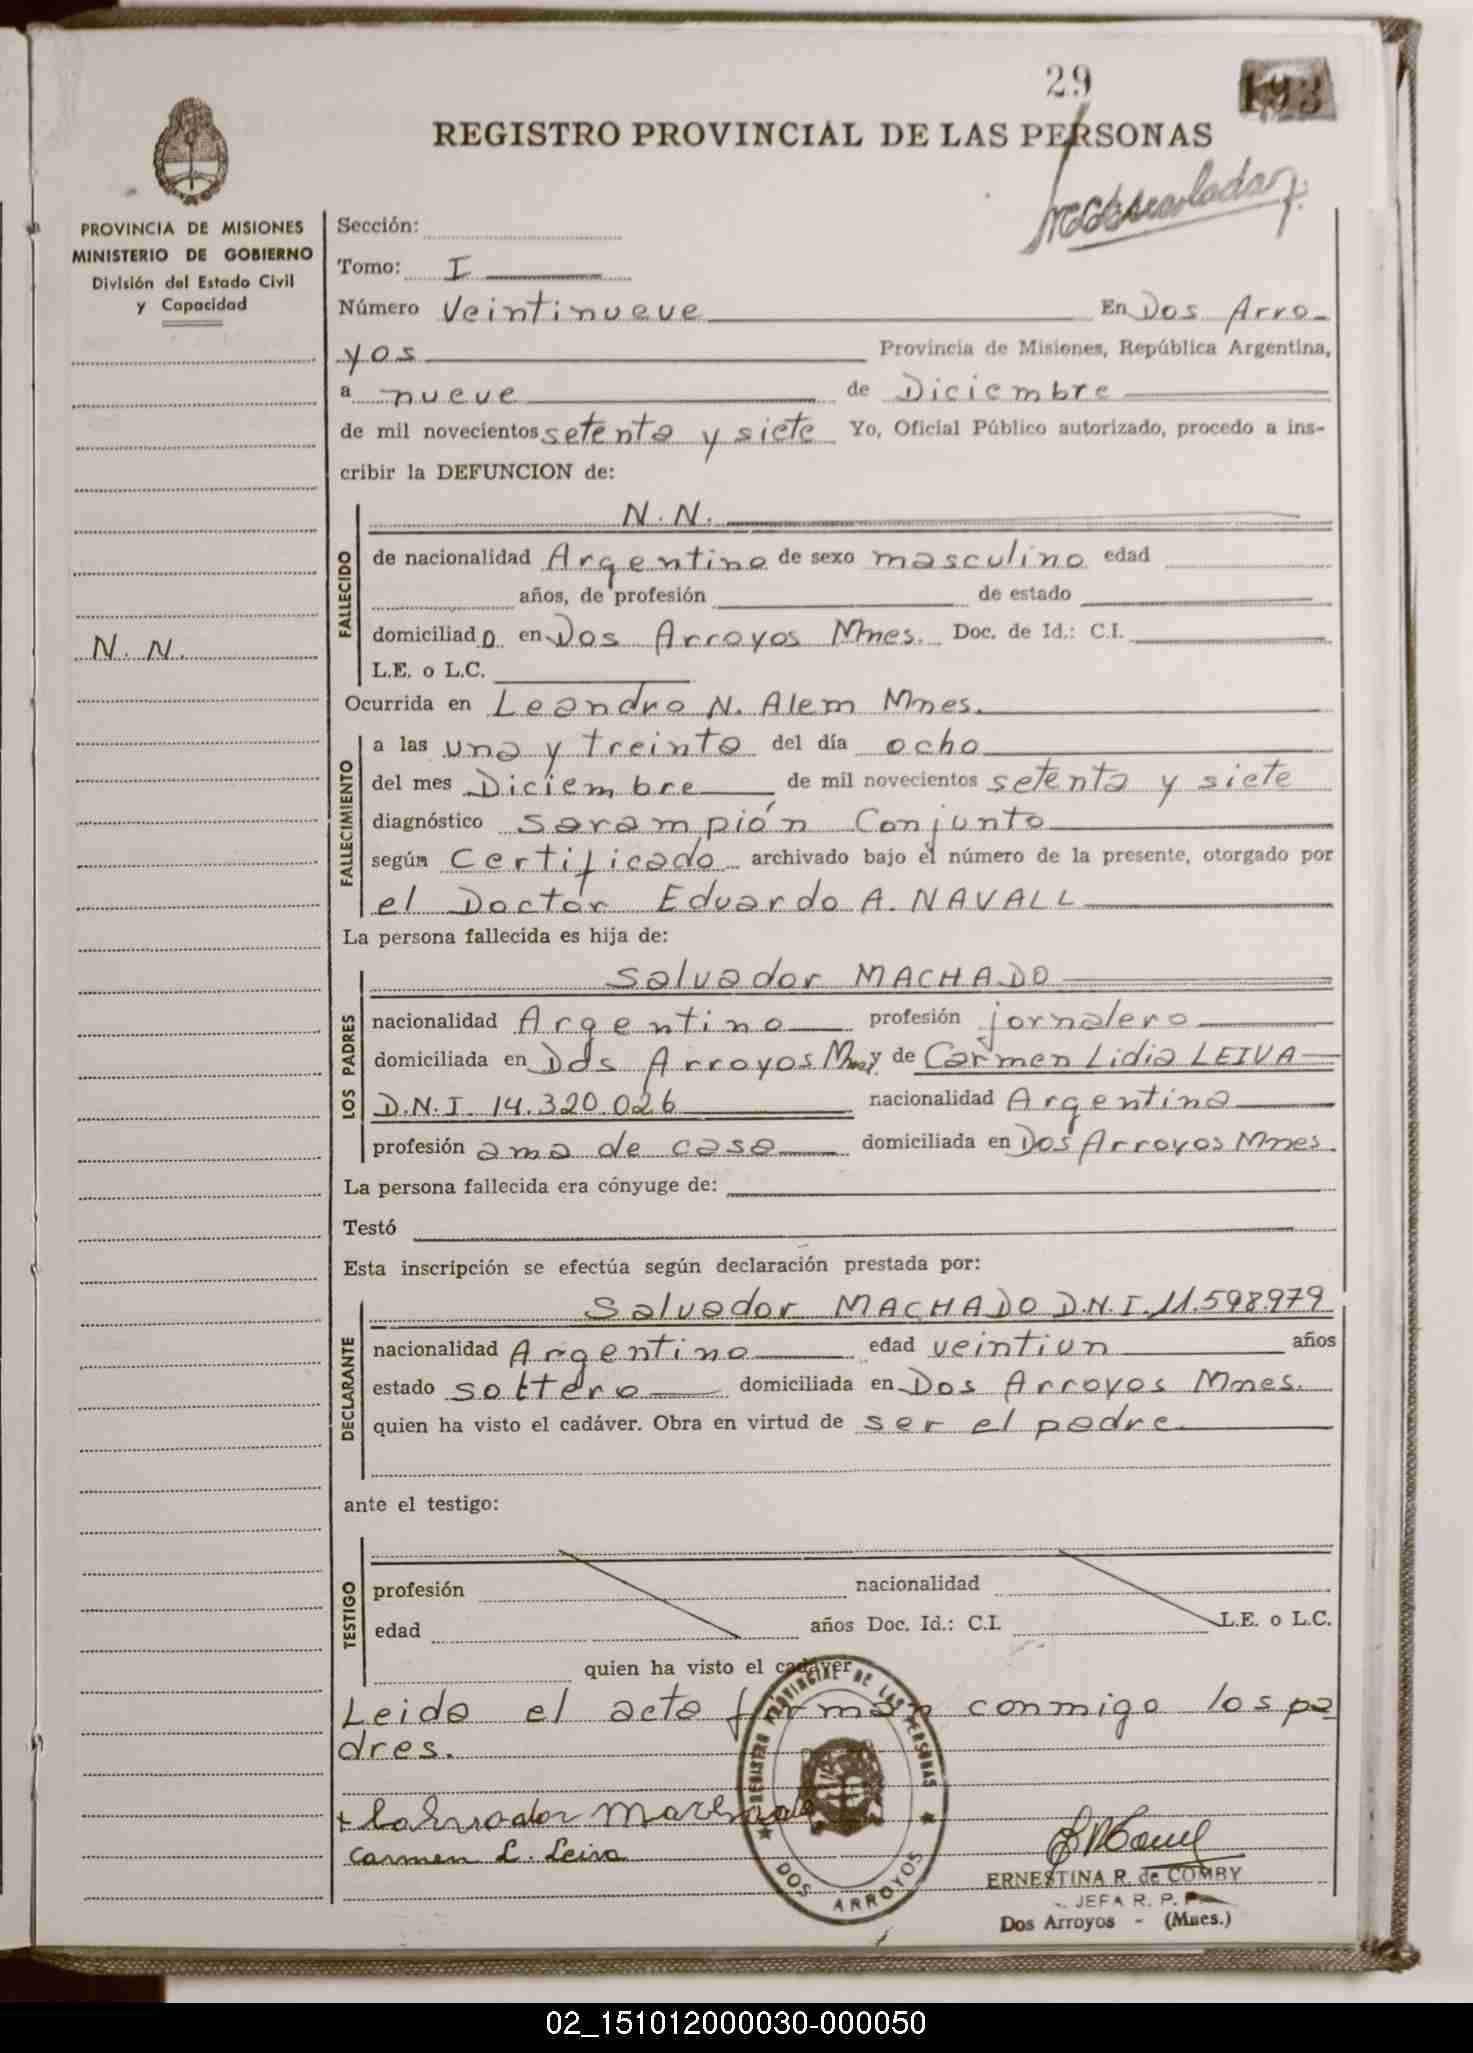 29
193
REGISTRO PROVINCIAL DE LAS PERSONAS
PROVINCIA DE MISIONES
MINISTERIO DE GOBIERNO
División del Estado Civil
y Capacidad
N. N.
Sección:
Tomo: I
Número Veintinueve En Dos Arro-
yos Provincia de Misiones, República Argentina,
a nueve de Diciembre
de mil novecientos setenta y siete Yo, Oficial Público autorizado, procedo a ins-
cribir la DEFUNCION de:
FALLECIDO
N. N.
de nacionalidad Argentino de sexo masculino edad
años, de profesión de estado
domiciliado en Dos Arroyos Mnes. Doc. de Id.: C.I.
L.E. o L.C.
Ocurrida en Leandro N. Alem Mnes.
FALLECIMIENTO
a las una y treinta del día ocho
del mes Diciembre de mil novecientos setenta y siete
diagnóstico Sarampión Conjunto
según Certificado archivado bajo el número de la presente, otorgado por
el Doctor Eduardo A. NAVALL
La persona fallecida es hija de:
LOS PADRES
Salvador MACHADO
nacionalidad Argentino profesión jornalero
domiciliada en Dos Arroyos Mnes y de Carmen Lidia LEIVA
D.N.I. 14.320.026 nacionalidad Argentina
profesión ama de casa domiciliada en Dos Arroyos Mnes.
La persona fallecida era cónyuge de:
Testó
Esta inscripción se efectúa según declaración prestada por:
DECLARANTE
Salvador MACHADO D.N.I. 11.598.979
nacionalidad Argentino edad veintiun años
estado soltero domiciliada en Dos Arroyos Mnes.
quien ha visto el cadáver. Obra en virtud de ser el padre.
ante el testigo:
TESTIGO
profesión nacionalidad
edad años Doc. Id.: C.I. L.E. o L.C.
quien ha visto el cadáver
Leida el acta firman conmigo los pa
dres.
Salvador Machado
Carmen L. Leiva
REGISTRO PROVINCIAL DE LAS PERSONAS
DOS ARROYOS
ERNESTINA R. de COMBY
JEFA R. P. P.
Dos Arroyos - (Mnes.)
02_151012000030-000050